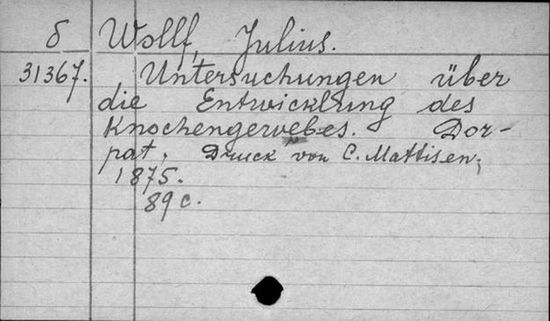 δ Wollf, Julius.
31367. Untersuchungen über
die Entwicklung des
Knochengewebes. Dor-
pat, Druck von C. Mattisen,
1875.
89 c.